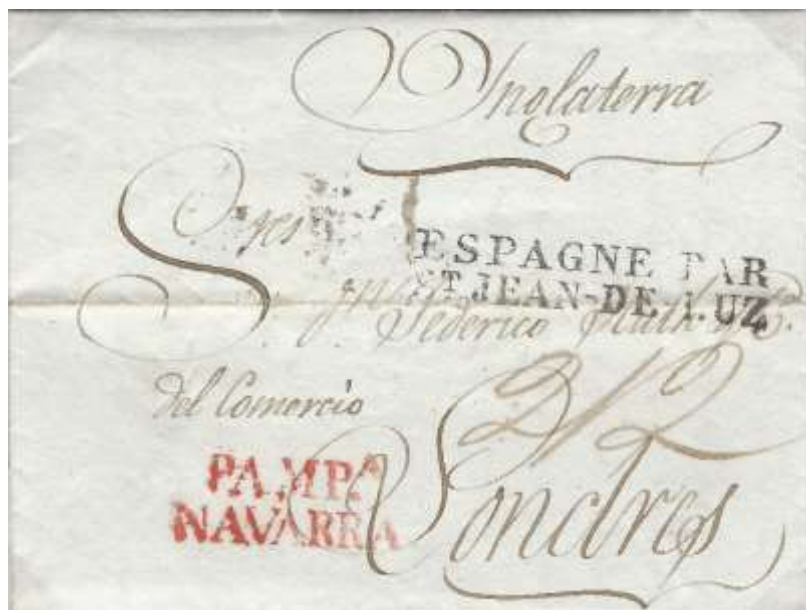 Inglaterra
Sres
ESPAGNE PAR
ST JEAN-DE LUZ
Federico
del Comercio
2/2
PAMPA
NAVARRA
Londres